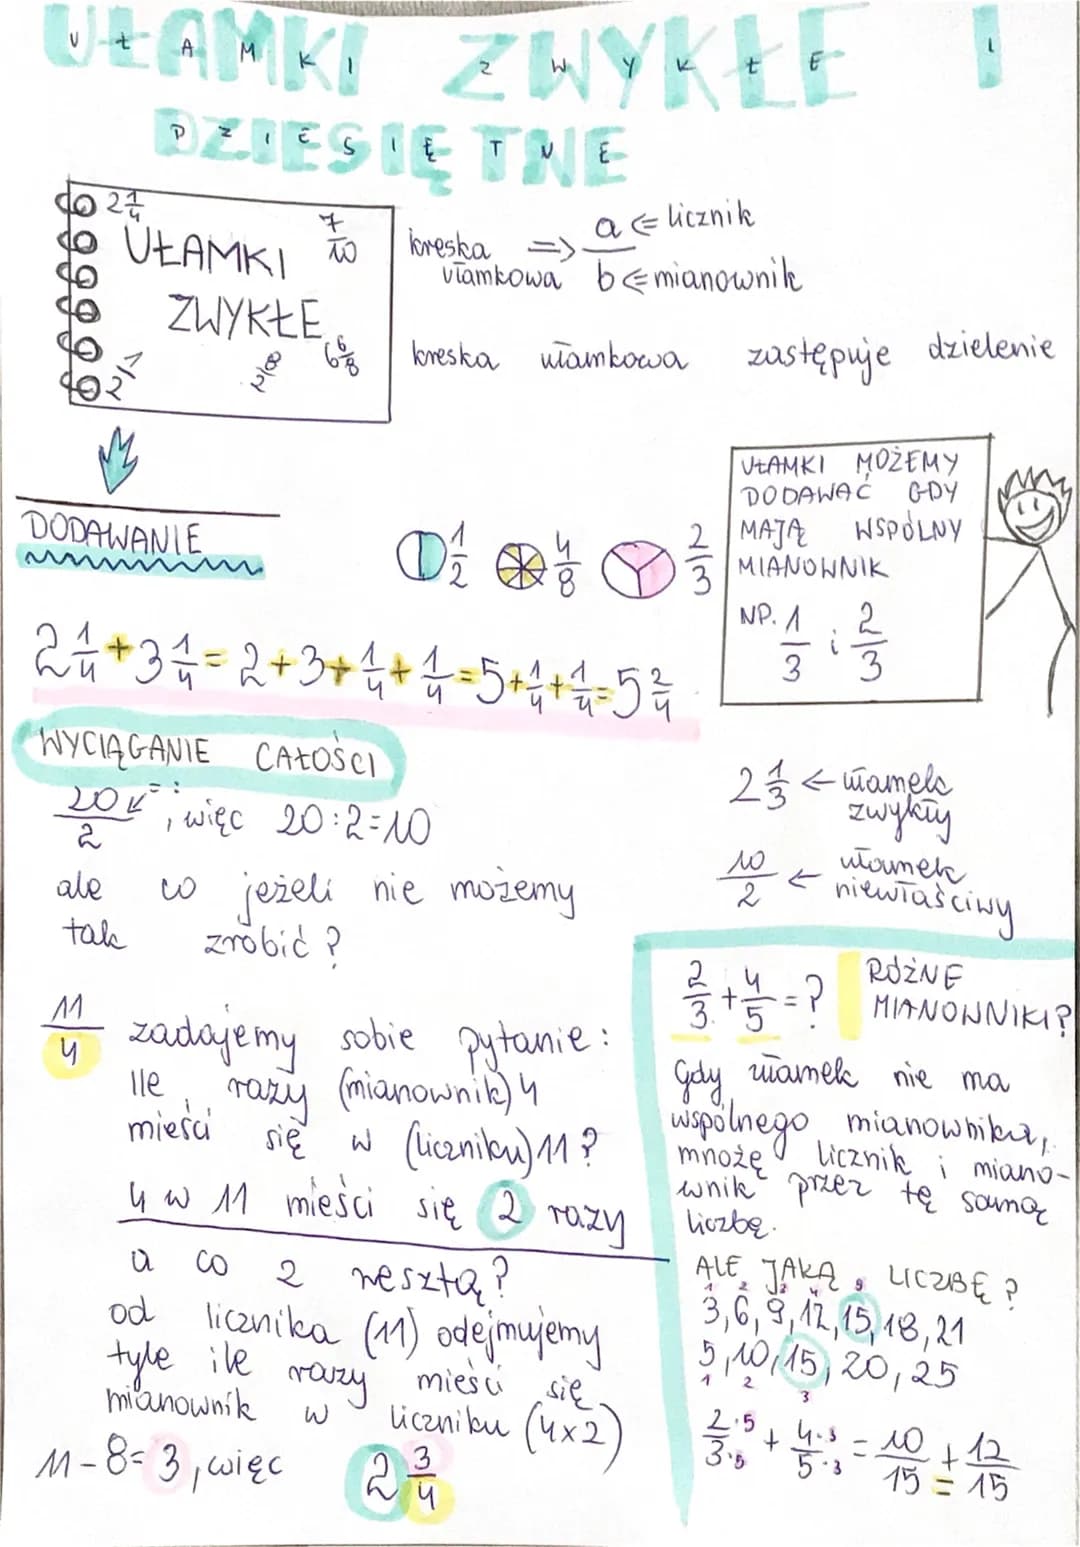 UŁAMKI ZWYKŁE I
DZIESIĘTNE
2 1/4
7/10
UŁAMKI
ZWYKŁE
2/1
2/8
6 6/8
kreska ułamkowa => a/b
a ⇐ licznik
b ⇐ mianownik
kreska ułamkowa zastępuje dzielenie
DODAWANIE
1/2 4/8 2/3
UŁAMKI MOŻEMY
DODAWAĆ GDY
MAJĄ WSPÓLNY
MIANOWNIK
NP. 1/3 i 2/3
2 1/4 + 3 1/4 = 2+3+ 1/4 + 1/4 = 5+ 1/4 + 1/4 = 5 2/4
WYCIĄGANIE CAŁOŚCI
20/2 ↙ = : , więc 20:2=10
ale co jeżeli nie możemy
tak zrobić?
2 1/3 ← ułamek
zwykły
10/2 ← ułamek
niewłaściwy
11/4 zadajemy sobie pytanie:
Ile razy (mianownik) 4
mieści się w (liczniku) 11?
4 w 11 mieści się 2 razy
a co z resztą?
od licznika (11) odejmujemy
tyle ile razy mieści się
mianownik w liczniku (4x2)
11-8=3, więc 2 3/4
2/3 + 4/5 = ?
RÓŻNE
MIANOWNIKI?
Gdy ułamek nie ma
wspólnego mianownika,
mnożę licznik i miano-
wnik przez tę samą
liczbę.
ALE JAKĄ LICZBĘ?
1 2 3 4 5
3,6,9,12,15,18,21
5,10,15,20,25
1 2 3
2·5/3·5 + 4·3/5·3 = 10/15 + 12/15
=